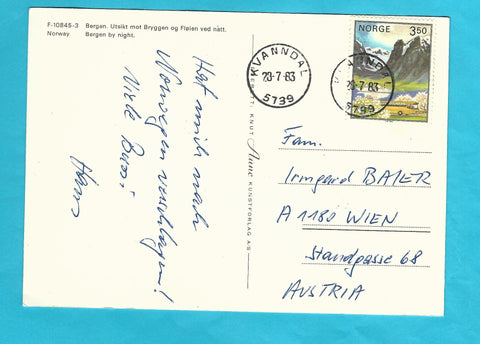 F-10845-3 Bergen. Utsikt mot Bryggen og Fløien ved natt.
Norway Bergen by night.
Hat mich nach
Norwegen verschlagen!
Viele Bussi
Hans
ENERETT: KNUT Aune KUNSTFORLAG A.S
KVANNDAL
23-7-83
5739
NORGE 3,50
KVANNDAL
23-7-83
5739
Fam.
Irmgard BAIER
A 1180 WIEN
Standgasse 68
AUSTRIA